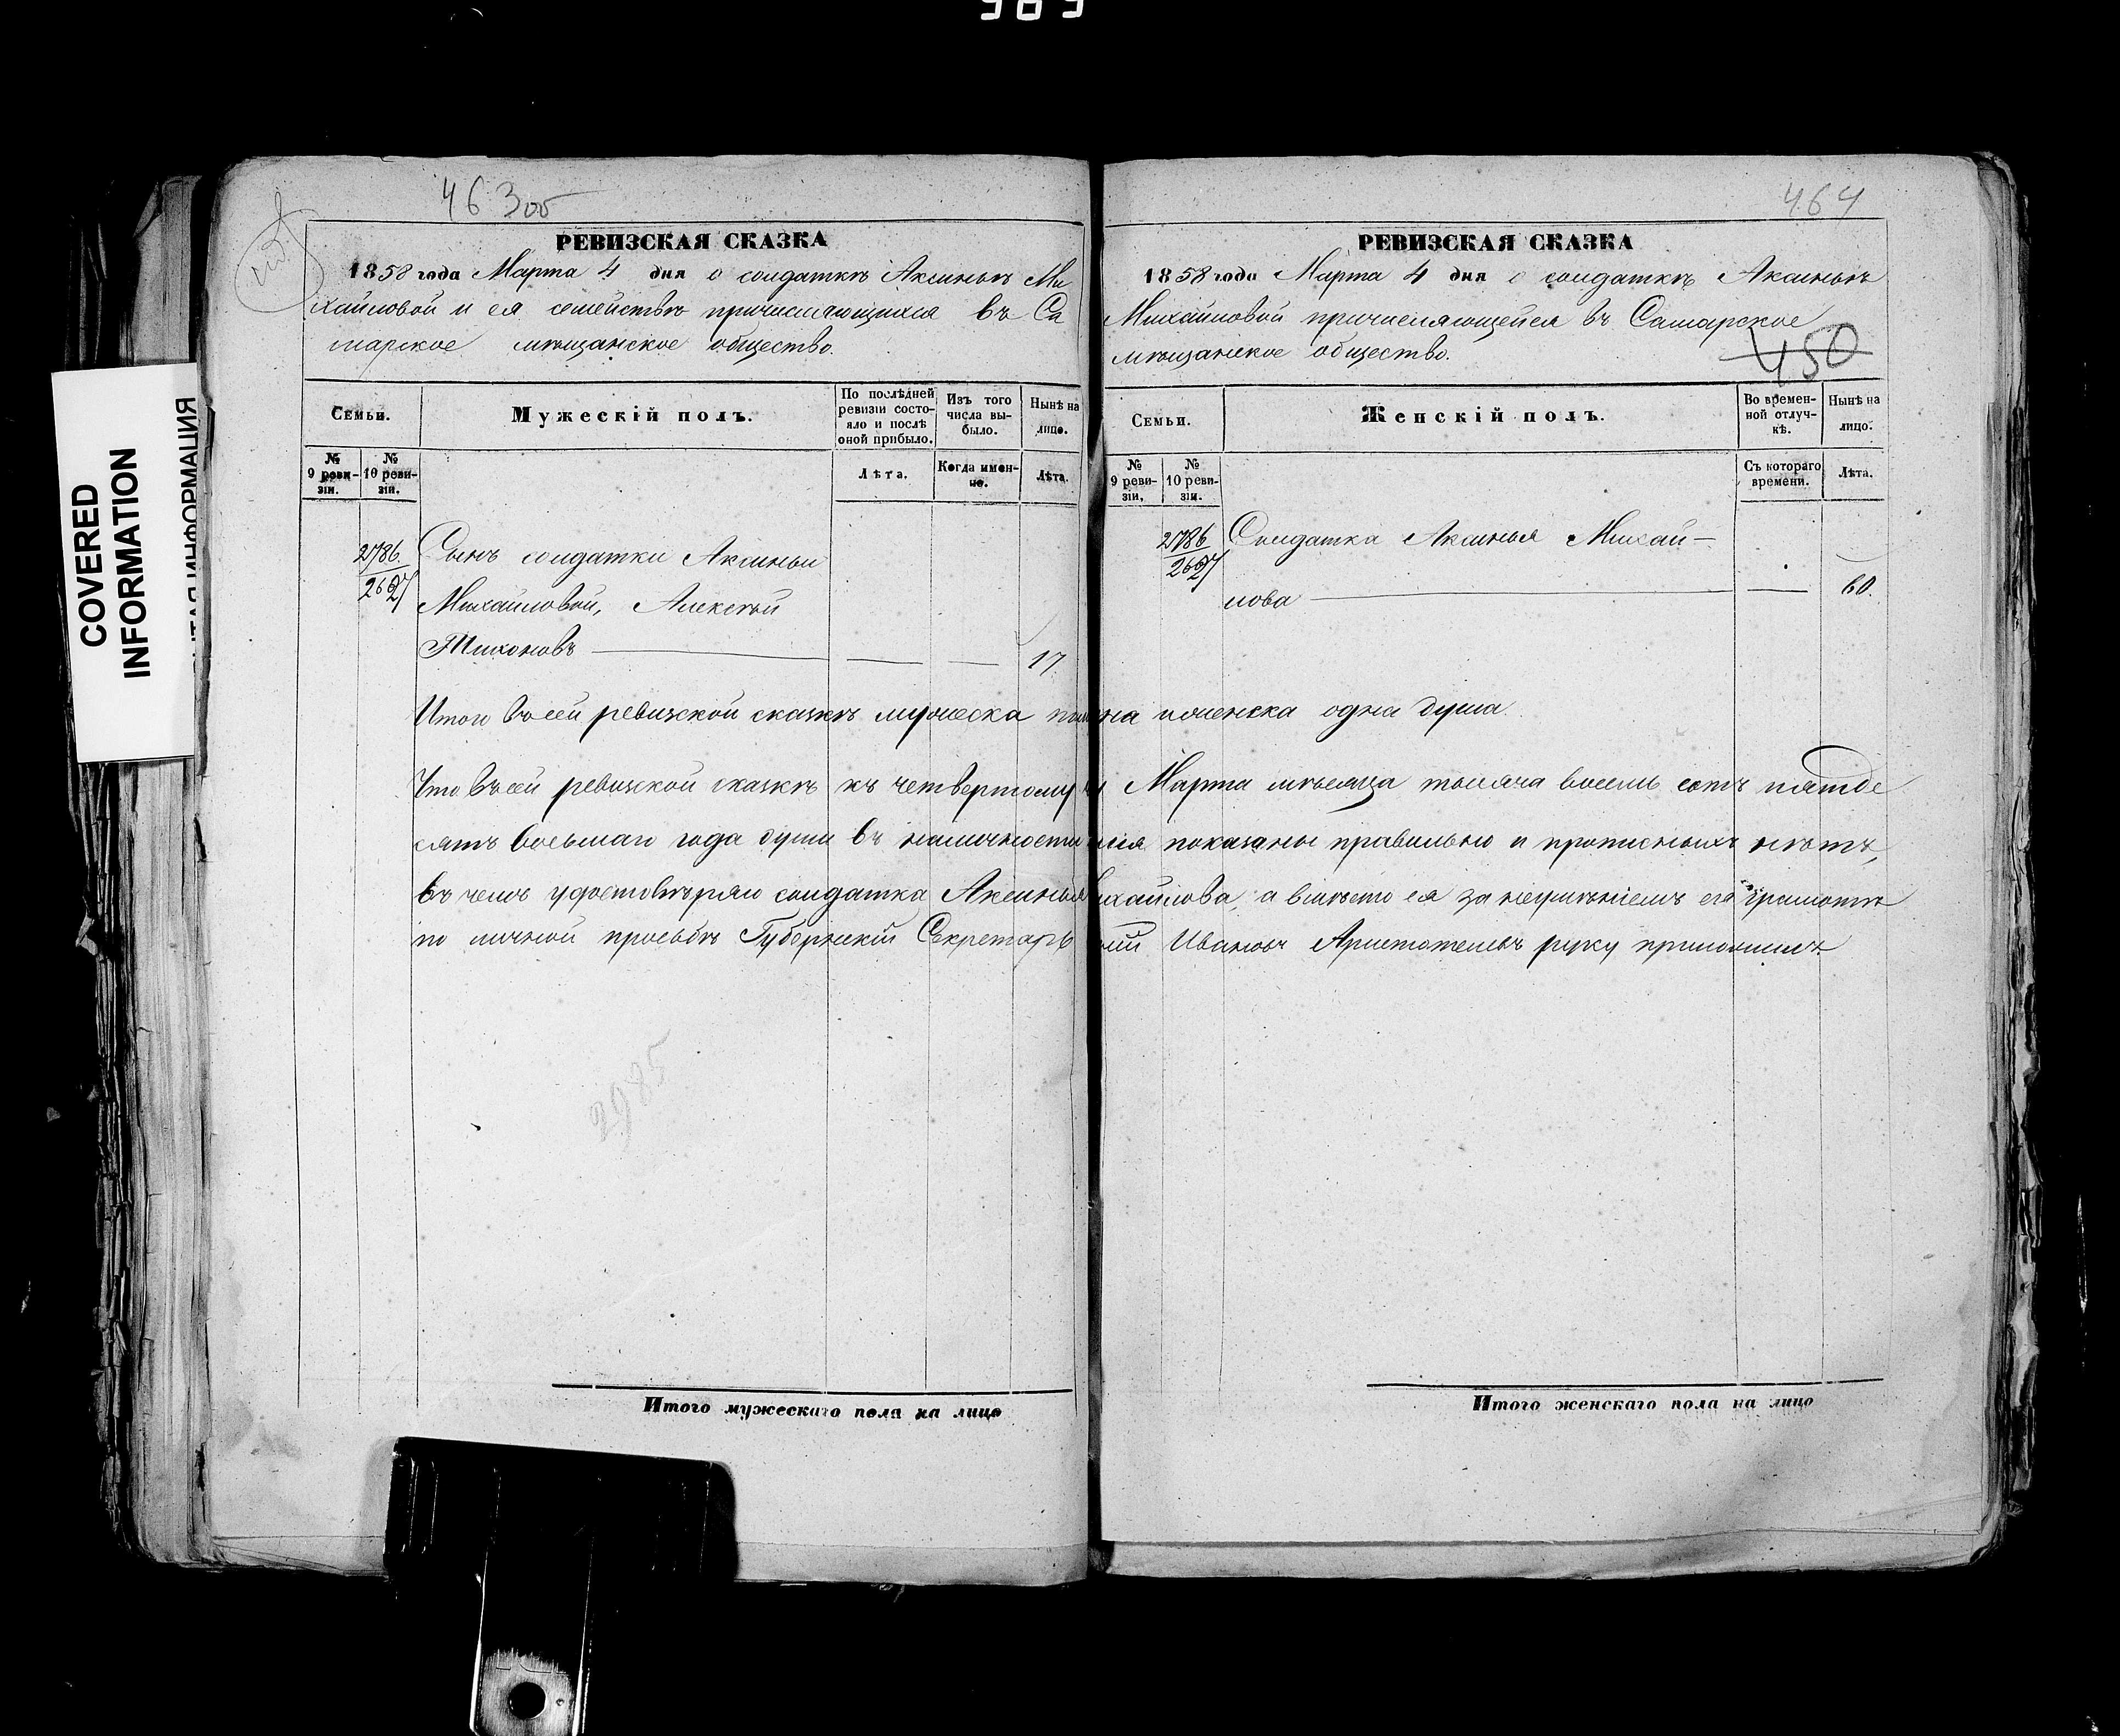 989
463 об
РЕВИЗСКАЯ СКАЗКА
1858 года Марта 4 дня о солдаткѣ Аксиньѣ Ми
хайловой и ея семействѣ причисляющихся въ Са
марское мѣщанское общество.
Семьи.
Мужескій полъ.
По послѣдней ревизіи состо-
яло и послѣ оной прибыло.
Изъ того числа вы-
было.
Нынѣ на лицо.
№ 9 реви-
зіи.
№ 10 реви-
зіи.
Лѣта.
Когда имен-
но.
Лѣта.
2786.
2627
Сынъ солдатки Аксиньи
Михайловой, Алексѣй
Тихоновъ — — — 17.
2985
Итого мужескаго пола на лицо
464
РЕВИЗСКАЯ СКАЗКА
1858 года Марта 4 дня о солдаткѣ Аксиньѣ
Михайловой причисляющейся въ Самарское
мѣщанское общество.
450
Семьи.
Женскій полъ.
Во времен-
ной отлуч-
кѣ.
Нынѣ на лицо.
№ 9 реви-
зіи.
№ 10 реви-
зіи.
Съ котораго времени.
Лѣта.
2786
2627
Солдатка Аксинья Михай-
лова — — 60.
Итого въ сей ревизской сказкѣ мужеска женска одна душа.
Что въ сей ревизской сказкѣ къ четвертому Марта мѣсяца тысяча восемь сотъ пятде
сятъ восьмаго года души въ наличности показаны правильно и прописныхъ нѣтъ,
въ чемъ удостовѣряю солдатка Аксинья ихайлова, а вмѣсто ея за неумѣніемъ ея грамотѣ
по личной просьбѣ Губернскій Секретарь Ивановъ Аристотелевъ руку приложилъ
Итого женскаго пола на лицо
COVERED
INFORMATION
ЫТАЯ ИНФОРМАЦИЯ